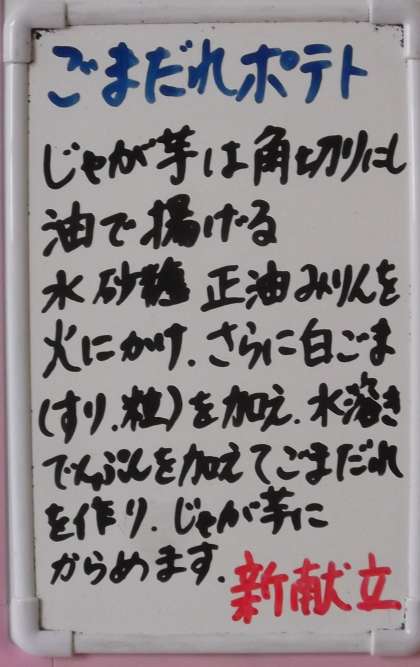 ごまだれポテト
じゃが芋は角切りにし
油で揚げる
水 砂糖 正油 みりんを
火にかけ、さらに白ごま
(すり、粒)を加え、水溶き
でんぷんを加えてごまだれ
を作り、じゃが芋に
からめます。
新献立